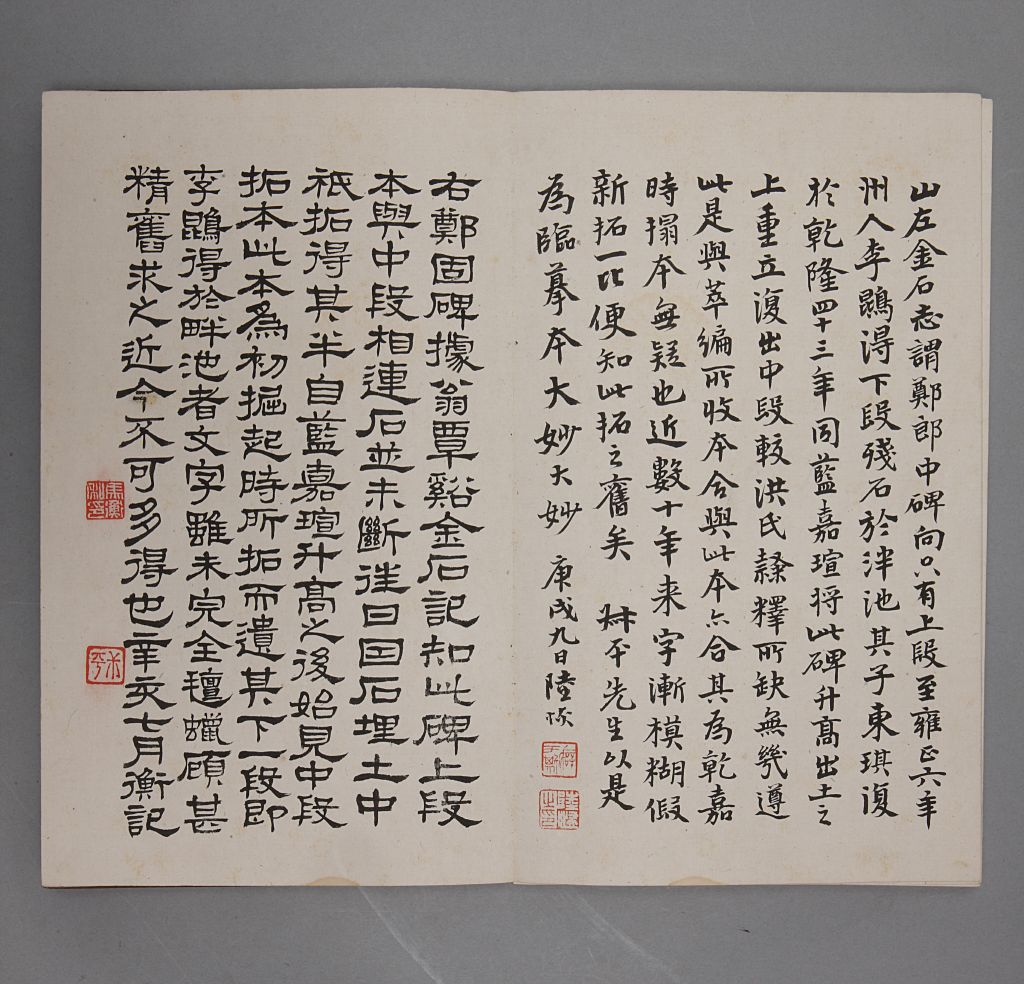 山左金石志謂鄭郎中碑向只有上段至雍正六年
州人李鵾淂下段殘石於泮池其子東琪復
於乾隆四十三年同藍嘉瑄将此碑升高出土之
上重立復出中段較洪氏隸釋所缺無幾遵
此是與萃編所收本合與此本亦合其為乾嘉
時搨本無疑也近數十年来字漸模糊假
新拓一比便知此拓之舊矣 尗平先生以是
為臨摹本大妙大妙 庚戌九日陸恢
右鄭固碑據翁覃谿金石記知此碑上段
本與中段相連石並未斷徃日因石埋土中
祇拓得其半自藍嘉瑄升髙之後始見中段
拓本此本為初掘起時所拓而遺其下一段即
李鵾得於畔池者文字雖未完全氊蠟頗甚
精舊求之近今不可多得也辛亥七月衡記
馬衡私印
尗平